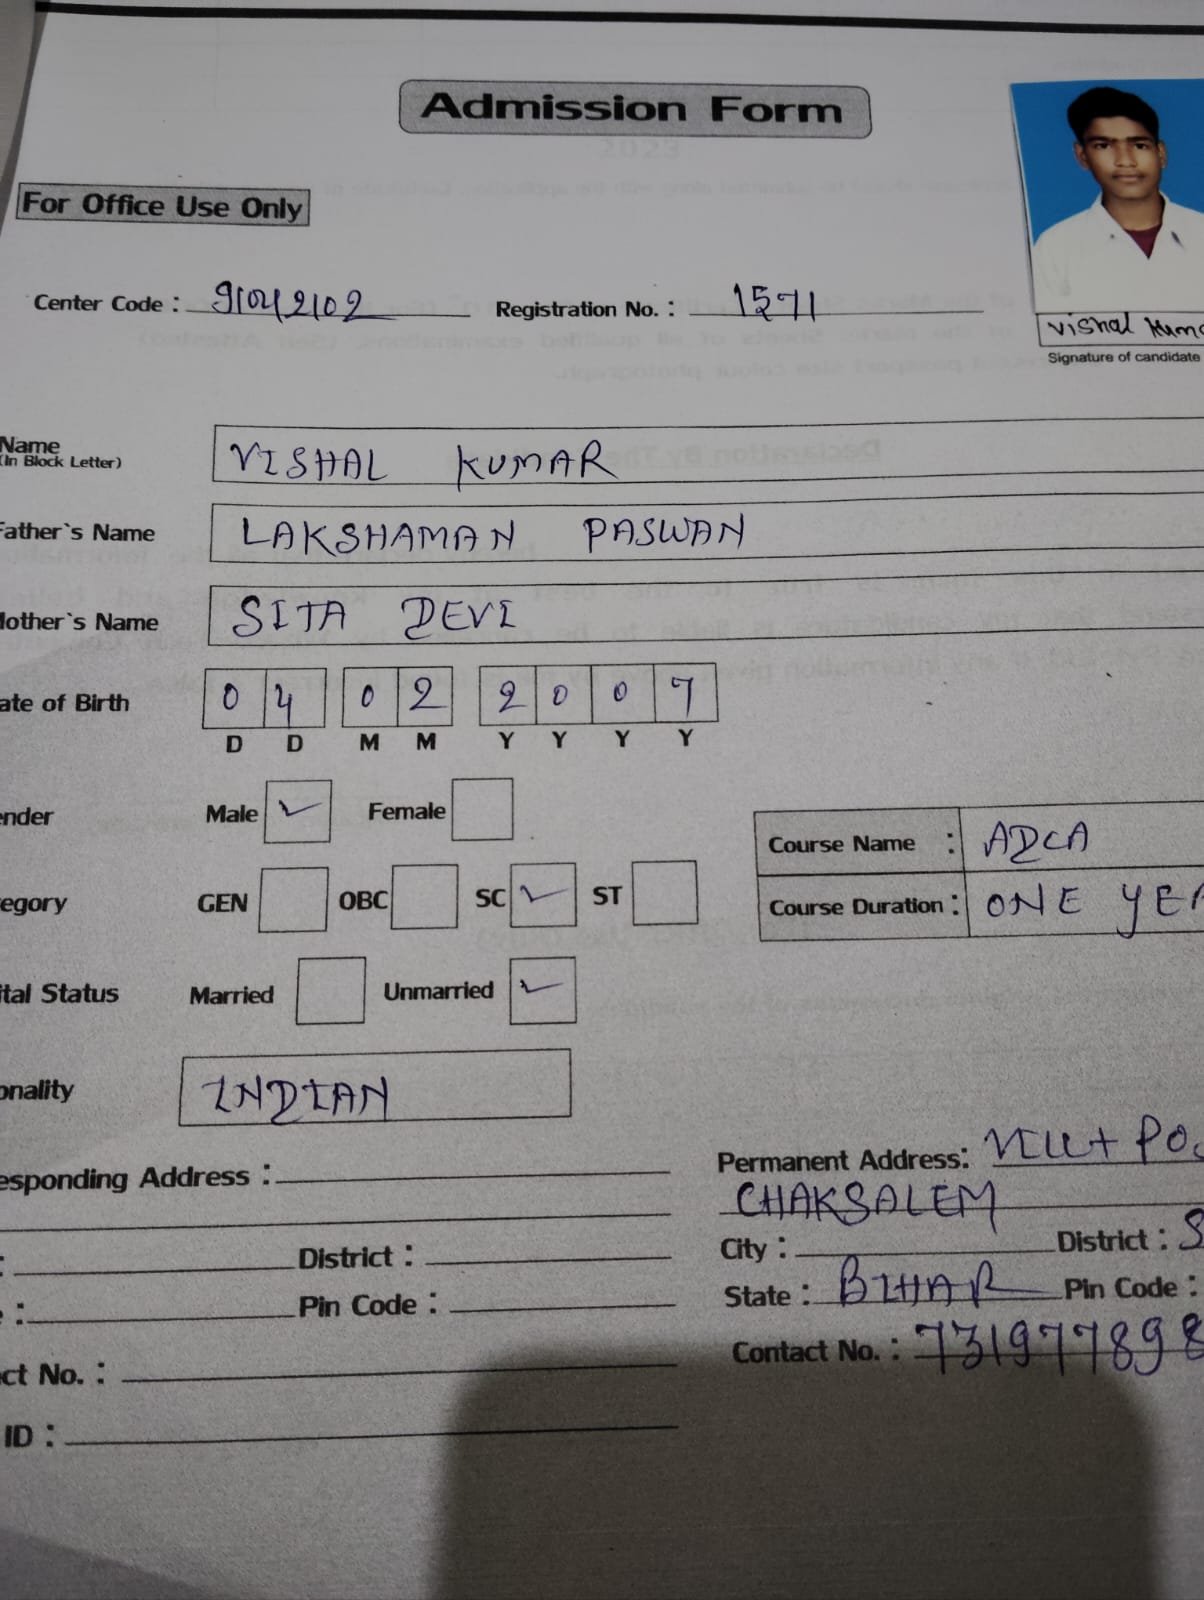 Admission Form
For Office Use Only
Center Code :
Registration No. : 1571
Vishal Kuma
Signature of candidate
Name VISHAL KUMAR
(In Block Letter)
Father`s Name LAKSHAMAN PASWAN
Mother`s Name SITA DEVI
ate of Birth 04 02 2007
D D M M Y Y Y Y
ender Male ✓ Female
Course Name : ADCA
egory GEN OBC SC ✓ ST
Course Duration : ONE YEA
ital Status Married Unmarried ✓
onality INDIAN
esponding Address :
Permanent Address: VILL+ PO
CHAKSALEM
: District :
City : District : S
: Pin Code :
State : BIHAR Pin Code :
ct No. :
Contact No. : 731977898
ID :